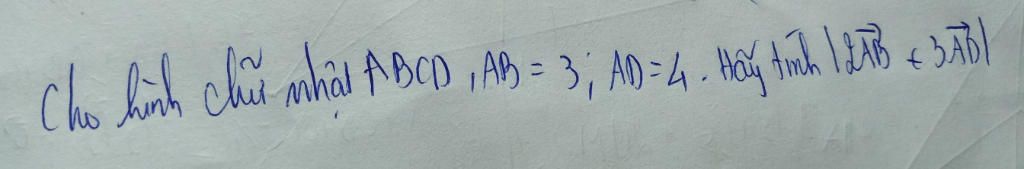 Cho hình chữ nhật ABCD, AB = 3; AD = 4. Hãy tính |2\overrightarrow{AB} + 3\overrightarrow{AD}|